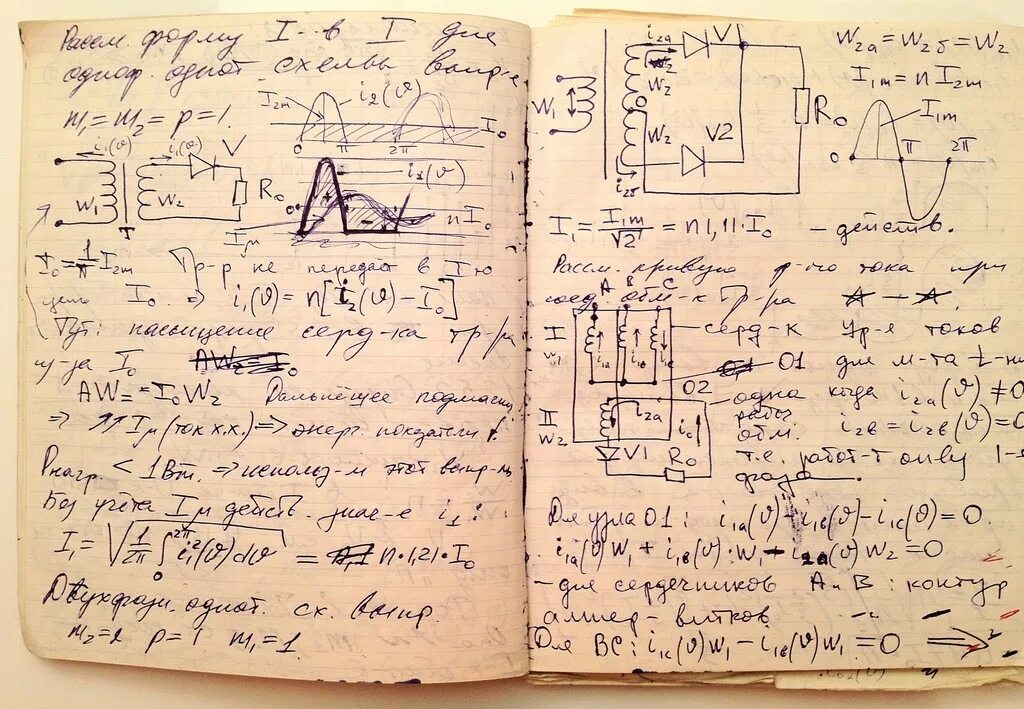 Рассм. форму I в I для
одноф. однот схемы выпр-я
m₁=m₂=p=1.
I₂m i₂(ϑ) I₀
0 π 2π
i₁(ϑ) i₂(ϑ) V
W₁ W₂ R₀
T
i₁(ϑ)
nI₀
Iμ
I₀=1/π I₂m Тр-р не передаёт в I-ю
цепь I₀. ⇒ i₁(ϑ) = n[i₂(ϑ)-I₀]
Тут: насыщение серд-ка тр-ра
из-за I₀
AW₌=I₀W₂ Дальнейшее подмагн.
⇒ ↑↑Iμ (ток х.х.) ⇒ энерг. показатели
Pнагр. < 1Вт. ⇒ использ-м этот выпр-ль
Без учёта Iμ действ. знач-е i₁:
I₁= √(1/2π ∫₀²π i₁²(ϑ)dϑ) = n·1,21·I₀
Двухфазн. однот. сх. выпр.
m₂=2 p=1 m₁=1
i₂a V1
W₂
W₁ 0
W₂ V2
i₂б
R₀
W₂a=W₂б=W₂
I₁m=nI₂m
I₁m
0 π 2π
I₁= I₁m/√2 = n1,11·I₀ - действ.
Рассм. кривую тока при
соед. обм-к Тр-ра
A B C
I W₁ i₁a i₁в i₁c
серд-к
Ур-е токов
01 для м-та t-ни
02
одна рабоч. обм.
когда i₂a(ϑ)≠0
i₂в = i₂c(ϑ)=0
II W₂ i₂a i₀
V1 R₀
т.е. работ-т только 1-я
фаза
Для узла 01: i₁a(ϑ)-i₁в(ϑ)-i₁c(ϑ)=0
i₁a(ϑ)W₁+i₁в(ϑ)·W₁-i₂a(ϑ)W₂=0
- для сердечников A и B: контур
ампер-витков
Для BC: i₁c(ϑ)W₁-i₁в(ϑ)W₁=0 ⇒